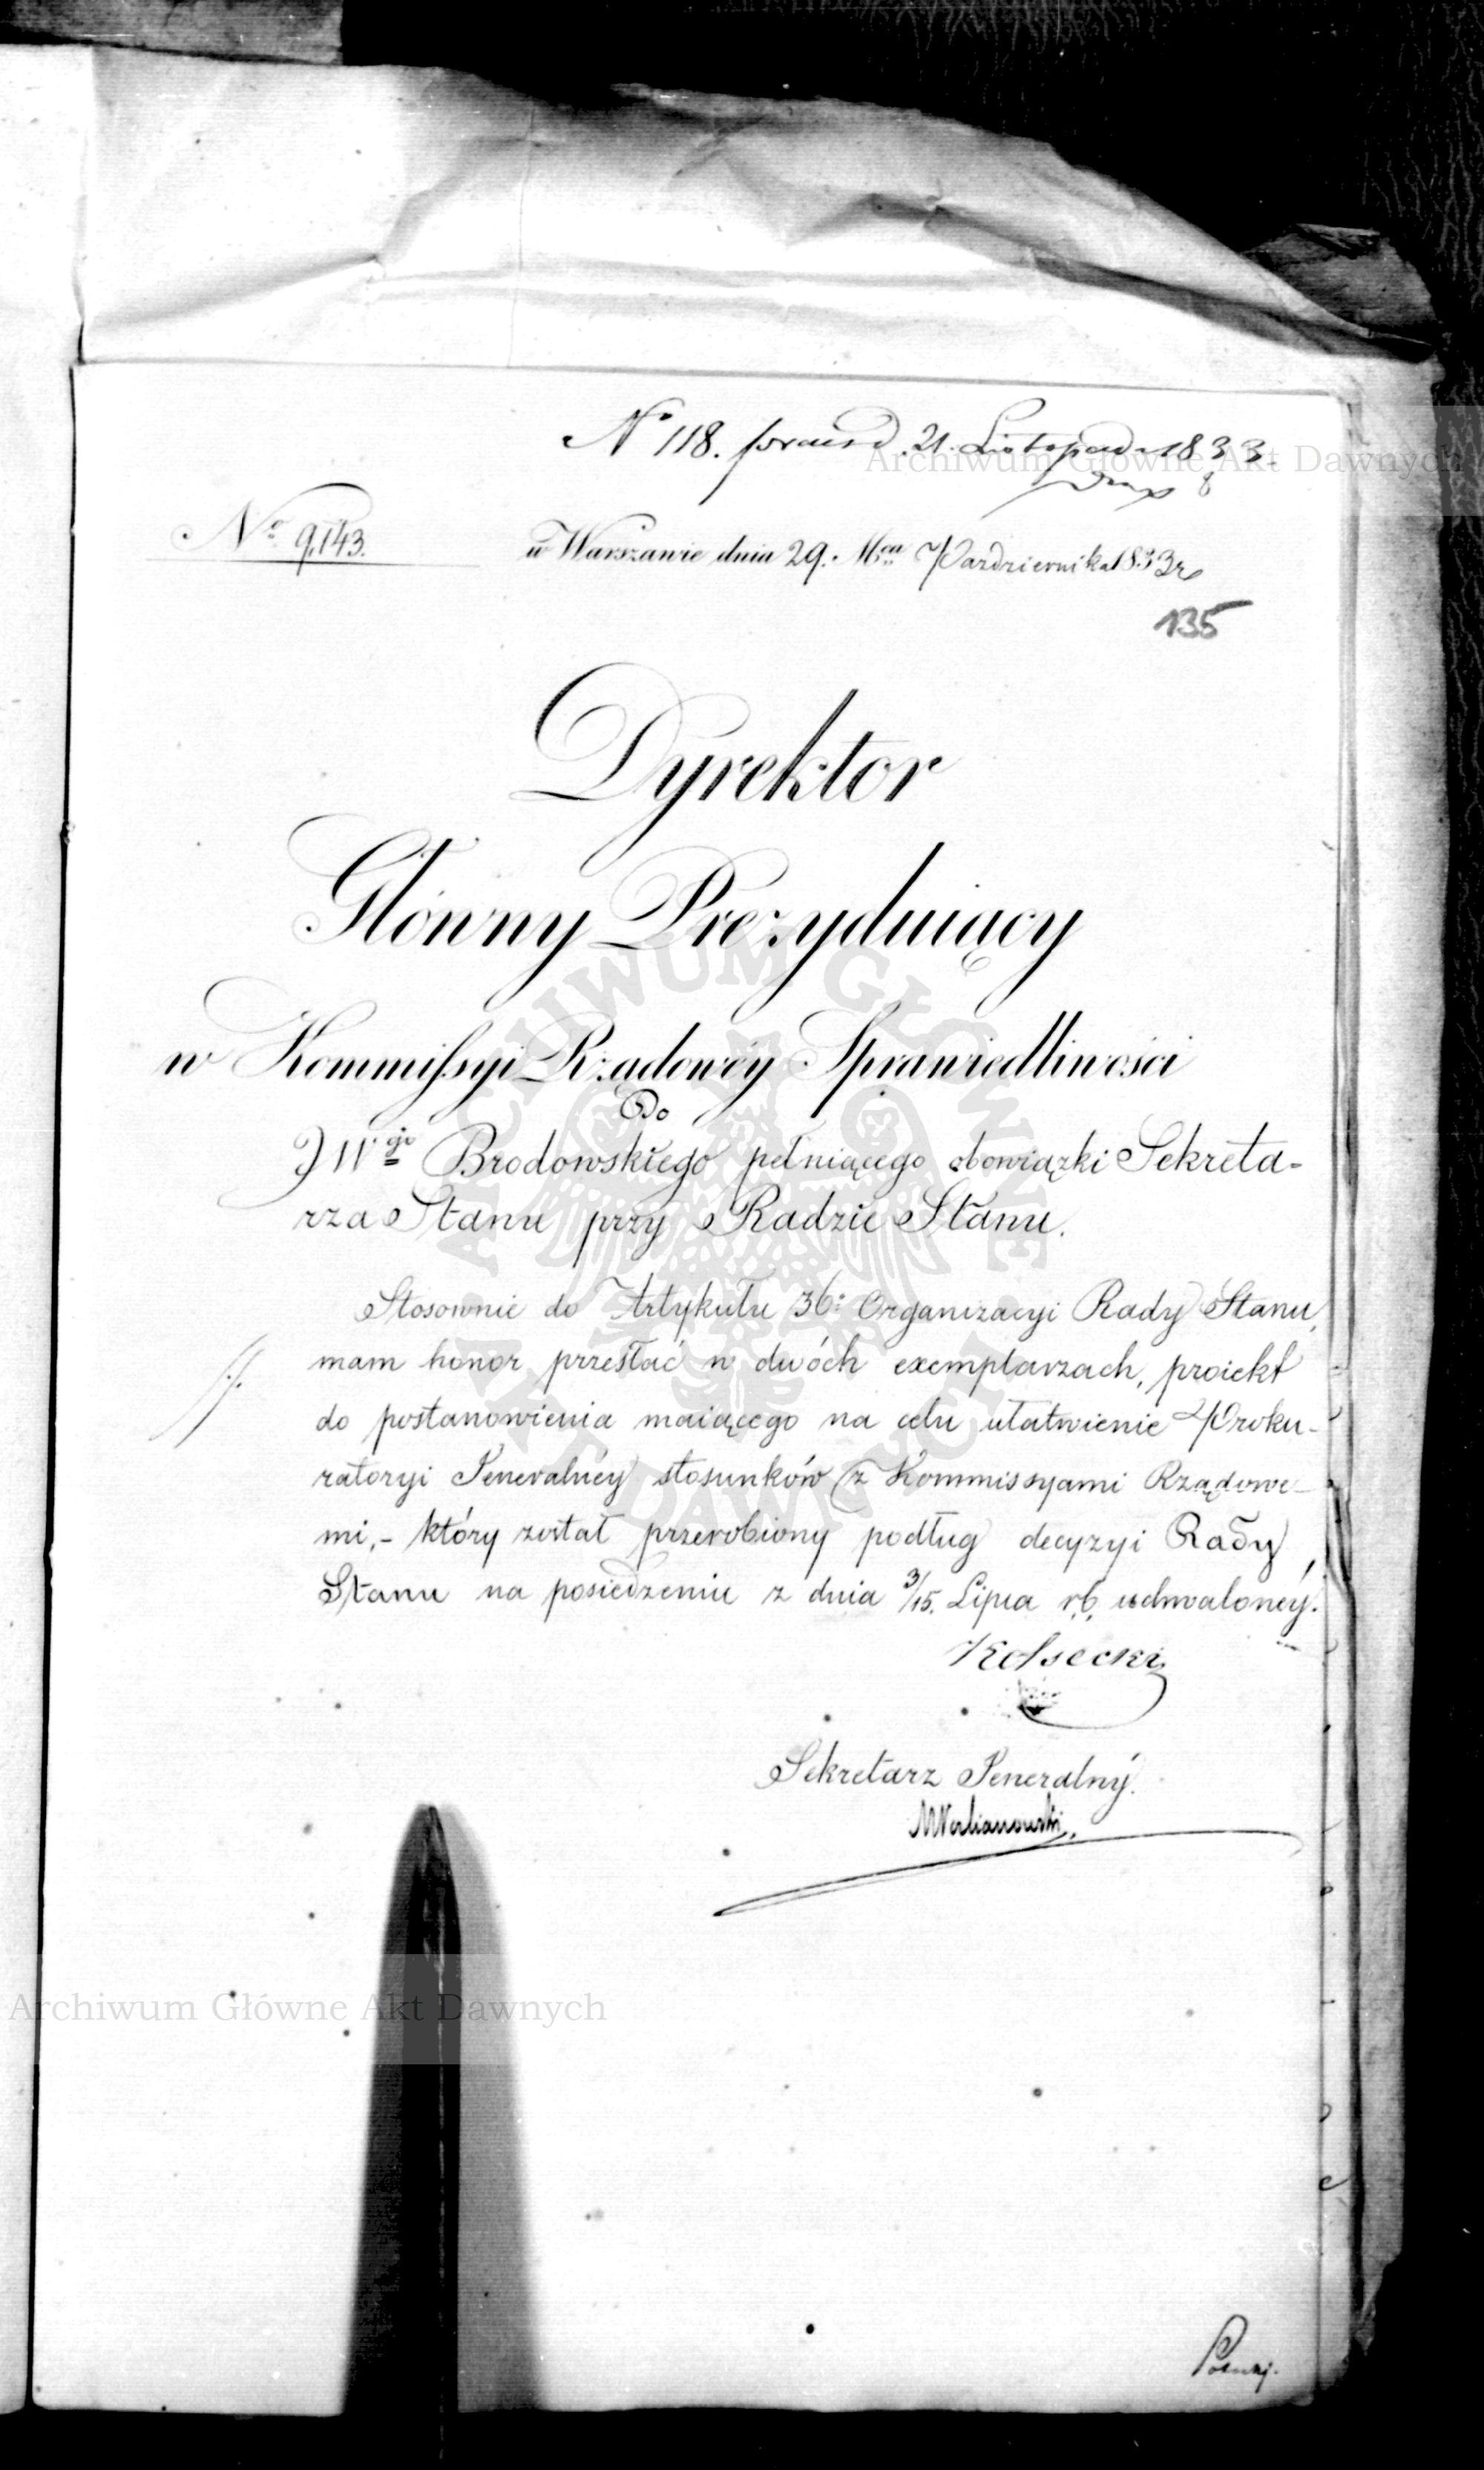 No 118. praes d. 21. Listopada 1833.
No 9,143.
w Warszawie dnia 29. Mca Października 1833 r
135
Dyrektor
Główny Prezyduiący
w Kommissyi Rządowéy Sprawiedliwości
Do
JWgo Brodowskiego pełniącego obowiązki Sekreta-
rza Stanu przy Radzie Stanu.
Stosownie do Artykułu 36: Organizacyi Rady Stanu,
mam honor przesłać w dwóch exemplarzach, proiekt
do postanowienia maiącego na celu ułatwienie Proku-
ratoryi Jeneralnéy stosunków z Kommissyami Rządowe-
mi,- który został przerobiony podług decyzyi Rady
Stanu na posiedzeniu z dnia 3/15. Lipca r.b. uchwalonéy.
Kossecki
Sekretarz Jeneralny.
Archiwum Główne Akt Dawnych
Archiwum Główne Akt Dawnych
ARCHIWUM GŁÓWNE AKT DAWNYCH